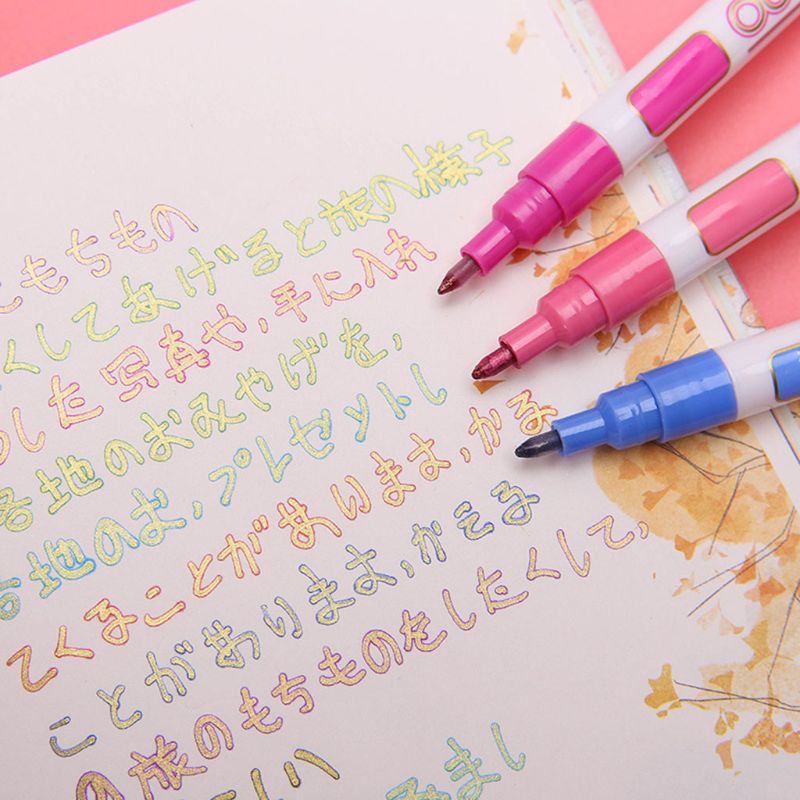 もちもの
くしてあげると旅の様子
した写真や,手に入れ
各地のおみやげを,
地のお,プレゼントし
てくることがあります,かる
ことがあります,かえる
の旅のもちものをしたくして,
しい
まし